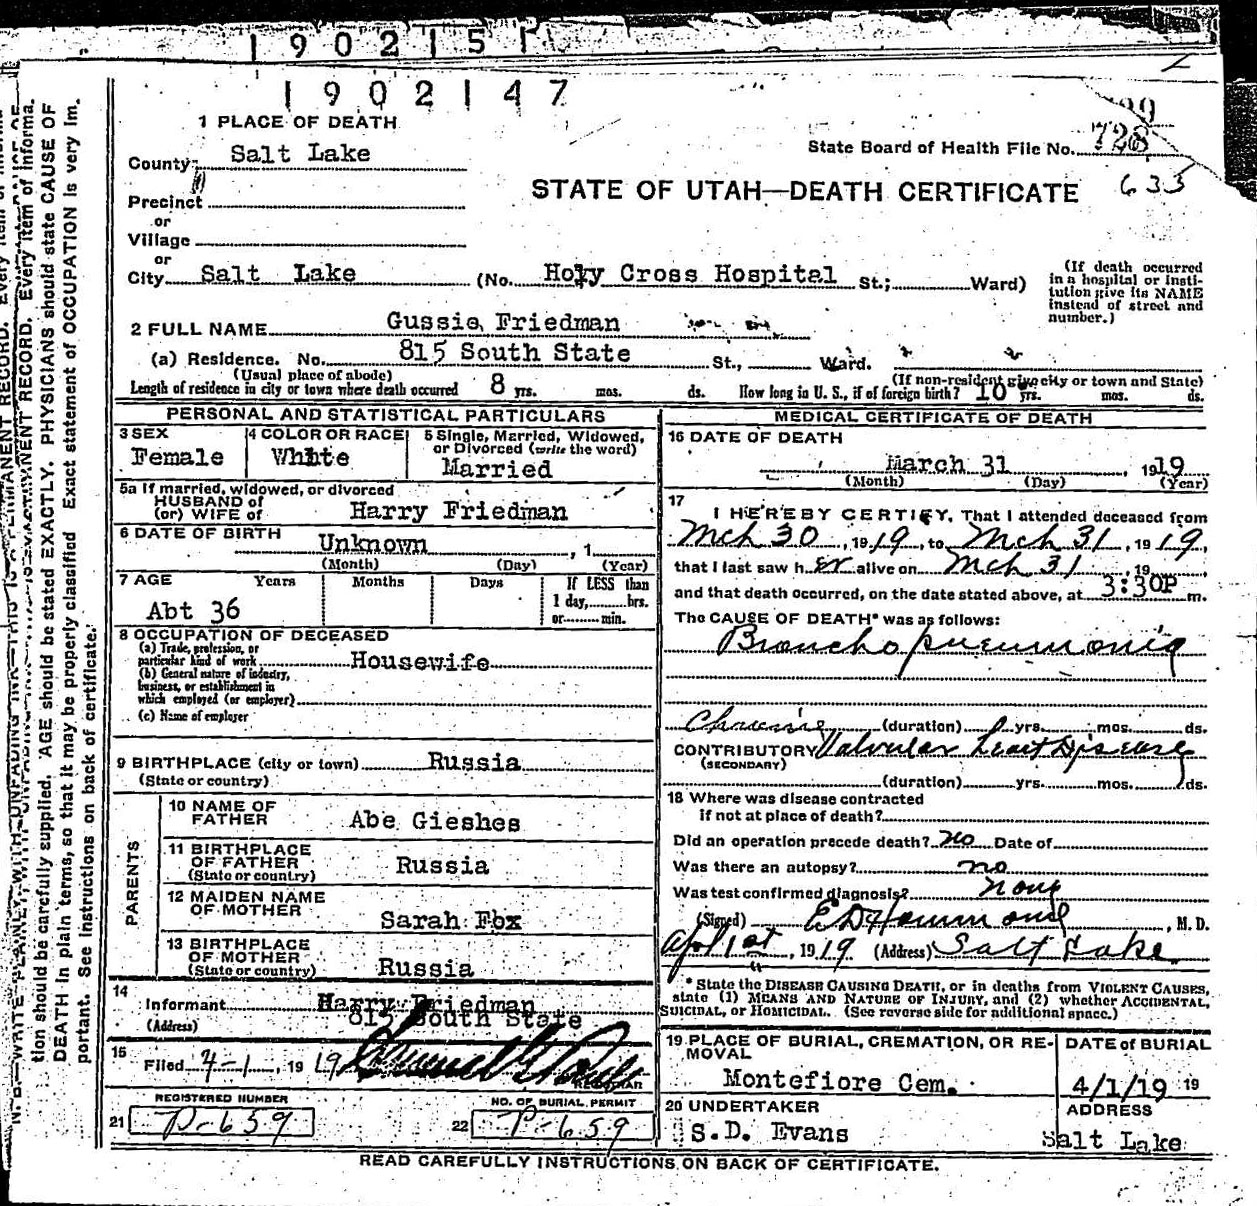 1902151
1902147
1 PLACE OF DEATH
County Salt Lake
State Board of Health File No. 728
635
STATE OF UTAH—DEATH CERTIFICATE
Precinct
or
Village
or
City Salt Lake (No. Holy Cross Hospital St.; Ward)
(If death occurred in a hospital or institution give its NAME instead of street and number.)
2 FULL NAME Gussie Friedman
(a) Residence. No. 815 South State St., Ward.
(Usual place of abode) (If non-resident give city or town and State)
Length of residence in city or town where death occurred 8 yrs. mos. ds. How long in U. S., if of foreign birth? 10 yrs. mos. ds.
PERSONAL AND STATISTICAL PARTICULARS
3 SEX Female
4 COLOR OR RACE White
5 Single, Married, Widowed, or Divorced (write the word) Married
5a If married, widowed, or divorced
HUSBAND of
(or) WIFE of Harry Friedman
6 DATE OF BIRTH Unknown , 1
(Month) (Day) (Year)
7 AGE Years Months Days If LESS than
1 day, hrs.
or min.
Abt 36
8 OCCUPATION OF DECEASED
(a) Trade, profession, or
particular kind of work Housewife
(b) General nature of industry,
business, or establishment in
which employed (or employer)
(c) Name of employer
9 BIRTHPLACE (city or town) Russia
(State or country)
PARENTS
10 NAME OF FATHER Abe Gieshes
11 BIRTHPLACE OF FATHER (State or country) Russia
12 MAIDEN NAME OF MOTHER Sarah Fox
13 BIRTHPLACE OF MOTHER (State or country) Russia
14 Informant Harry Friedman
(Address) 815 South State
15 Filed 4-1, 1919
REGISTRAR
REGISTERED NUMBER
21 P-659
NO. OF BURIAL PERMIT
22 P-659
MEDICAL CERTIFICATE OF DEATH
16 DATE OF DEATH
March 31 1919
(Month) (Day) (Year)
17 I HEREBY CERTIFY, That I attended deceased from
Mch 30, 1919, to Mch 31, 1919,
that I last saw her alive on Mch 31, 19
and that death occurred, on the date stated above, at 3:30P m.
The CAUSE OF DEATH* was as follows:
Broncho pneumonia
Chronic (duration) yrs. mos. ds.
CONTRIBUTORY Valvular heart Disease
(SECONDARY)
(duration) yrs. mos. ds.
18 Where was disease contracted
if not at place of death?
Did an operation precede death? no Date of
Was there an autopsy? no
Was test confirmed diagnosis? none
(Signed) E D Hammond, M. D.
Apl 1st, 1919 (Address) Salt Lake
* State the DISEASE CAUSING DEATH, or in deaths from VIOLENT CAUSES,
state (1) MEANS AND NATURE OF INJURY, and (2) whether ACCIDENTAL,
SUICIDAL, or HOMICIDAL. (See reverse side for additional space.)
19 PLACE OF BURIAL, CREMATION, OR REMOVAL
Montefiore Cem.
DATE of BURIAL
4/1/19 19
20 UNDERTAKER
S.D. Evans
ADDRESS
Salt Lake
READ CAREFULLY INSTRUCTIONS ON BACK OF CERTIFICATE.
tion should be carefully supplied. AGE should be stated EXACTLY. PHYSICIANS should state CAUSE OF
DEATH in plain terms, so that it may be properly classified. Exact statement of OCCUPATION is very im-
portant. See instructions on back of certificate.